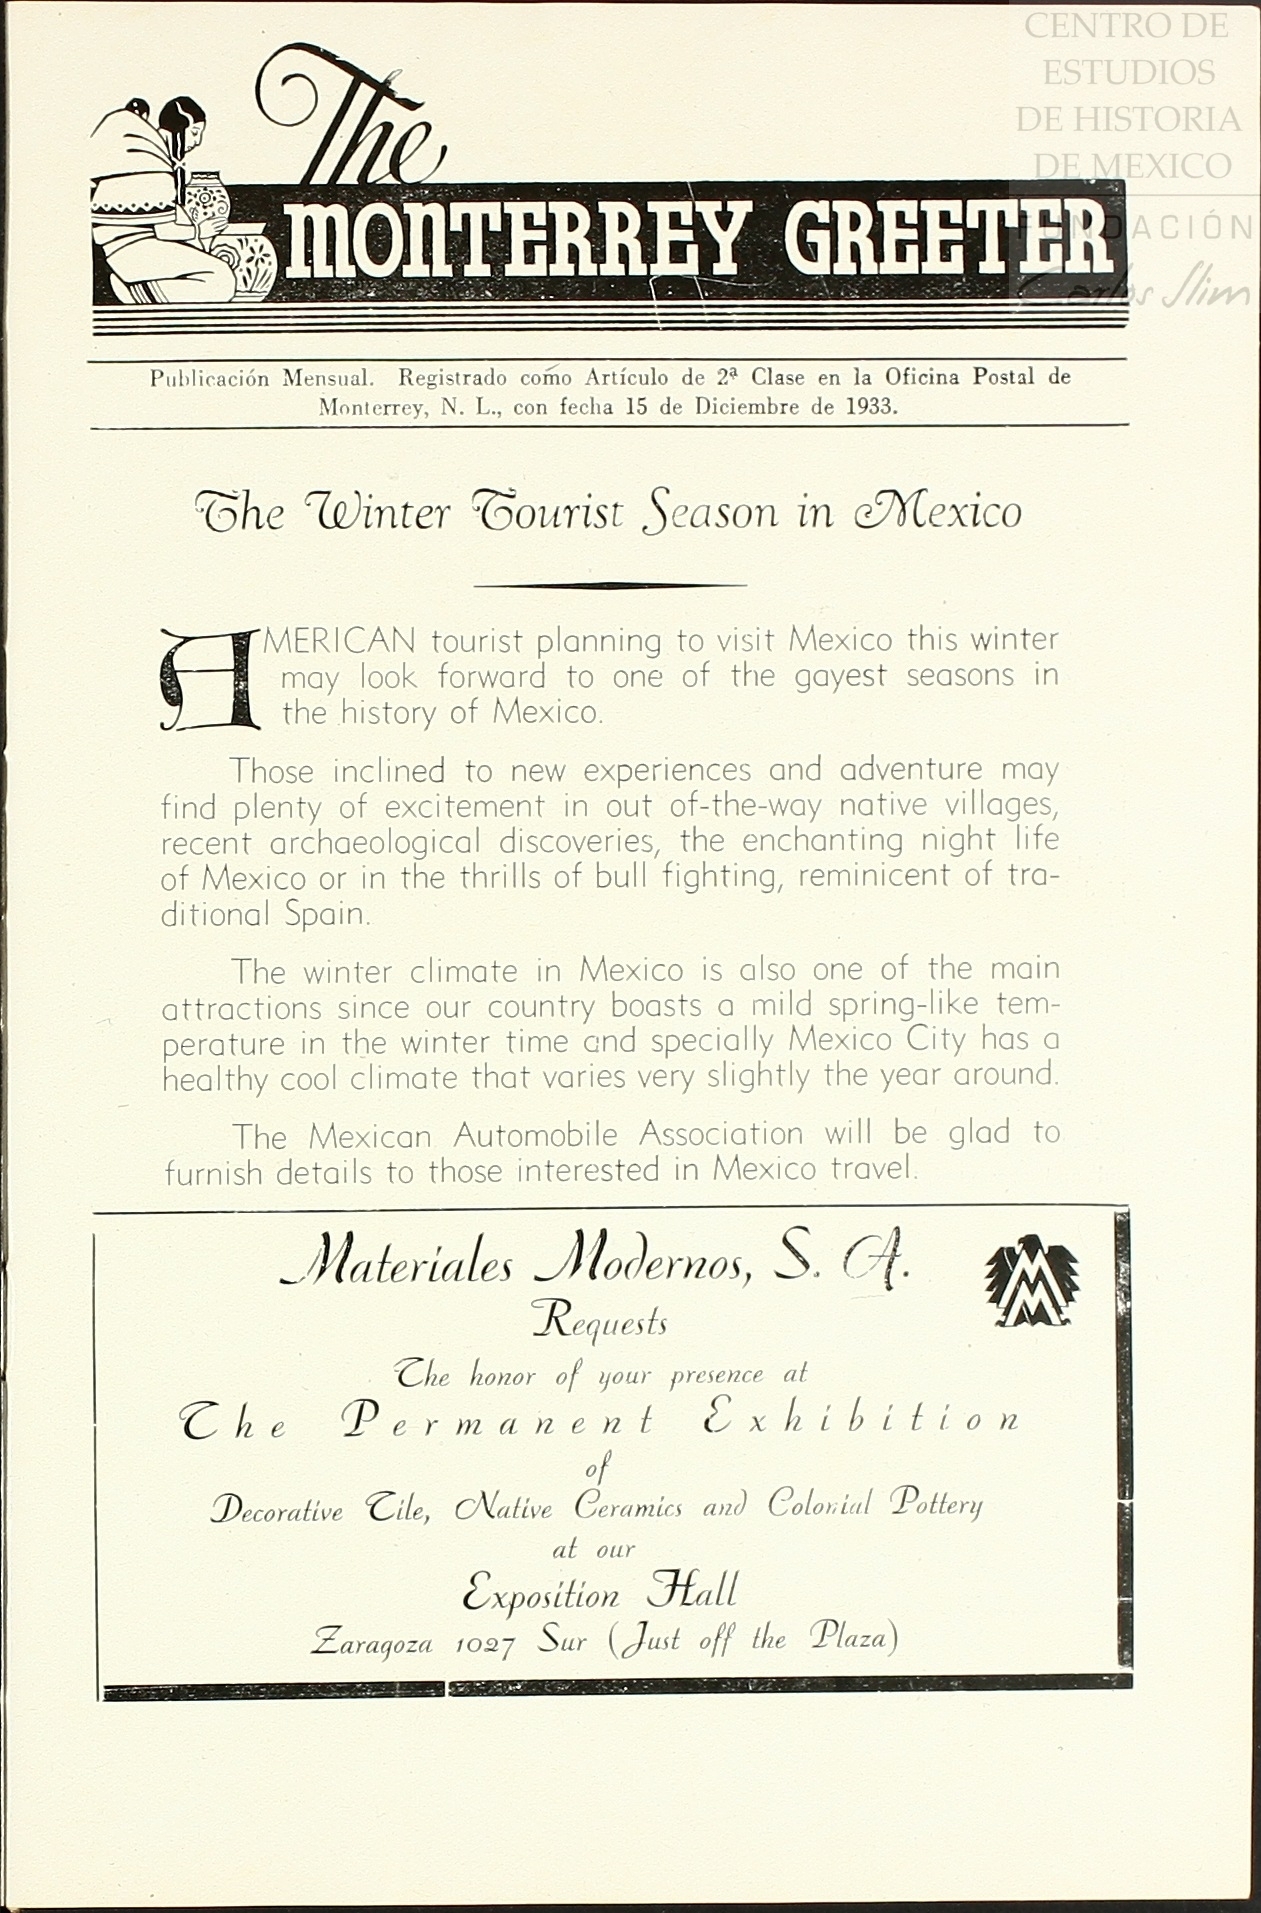 CENTRO DE
ESTUDIOS
DE HISTORIA
DE MEXICO
FUNDACIÓN
Carlos Slim
The
MONTERREY GREETER
Publicación Mensual. Registrado como Artículo de 2ª Clase en la Oficina Postal de
Monterrey, N. L., con fecha 15 de Diciembre de 1933.
The Winter Tourist Season in Mexico
AMERICAN tourist planning to visit Mexico this winter
may look forward to one of the gayest seasons in
the history of Mexico.
Those inclined to new experiences and adventure may
find plenty of excitement in out of-the-way native villages,
recent archaeological discoveries, the enchanting night life
of Mexico or in the thrills of bull fighting, reminicent of tra-
ditional Spain.
The winter climate in Mexico is also one of the main
attractions since our country boasts a mild spring-like tem-
perature in the winter time and specially Mexico City has a
healthy cool climate that varies very slightly the year around.
The Mexican Automobile Association will be glad to
furnish details to those interested in Mexico travel.
Materiales Modernos, S. A.
Requests
The honor of your presence at
The Permanent Exhibition
of
Decorative Tile, Native Ceramics and Colonial Pottery
at our
Exposition Hall
Zaragoza 1027 Sur (Just off the Plaza)